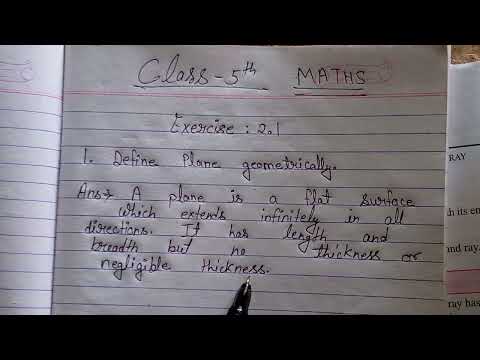 Class - 5th MATHS
Exercise : 2.1
1. Define Plane geometrically.
Ans→ A plane is a flat surface
which extends infinitely in all
directions. It has length and
breadth but no thickness or
negligible thickness.
RAY
nd ray.
ray has